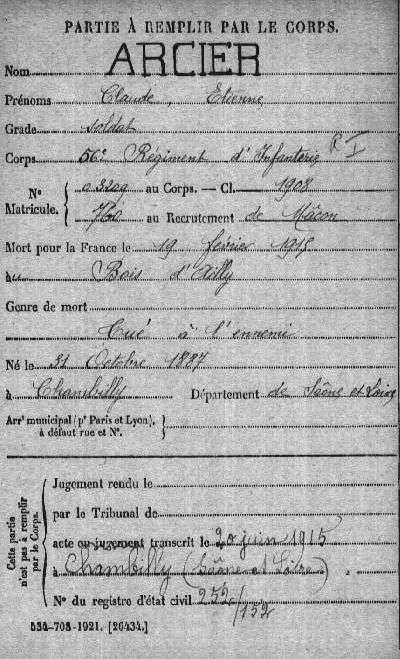 PARTIE À REMPLIR PAR LE CORPS.
Nom ARCIER
Prénoms Claude, Etienne
Grade soldat
Corps 56e Régiment d'Infanterie R I
N° Matricule. { 03209 au Corps. — Cl. 1908
760 au Recrutement de Mâcon
Mort pour la France le 19 février 1915
au Bois d'Ailly
Genre de mort
Tué à l'ennemi
Né le 31 Octobre 1887
à Chambilly Département de Saône et Loire
Arrt municipal (pr Paris et Lyon),
à défaut rue et N°.
Cette partie n'est pas à remplir par le Corps.
Jugement rendu le
par le Tribunal de
acte ou jugement transcrit le 20 juin 1915
à Chambilly (Saône et Loire)
N° du registre d'état civil 252/152
534-708-1921. [26434.]